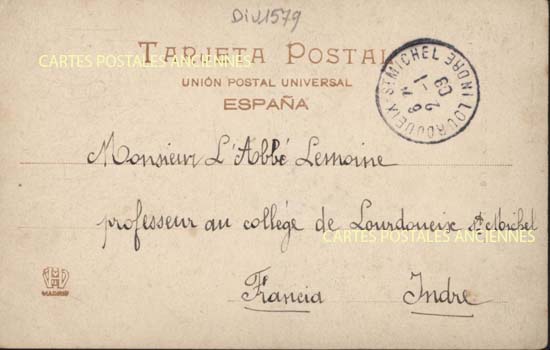 Div1579
CARTES POSTALES ANCIENNES
TARJETA POSTAL
UNIÓN POSTAL UNIVERSAL
ESPAÑA
LOURDOUEIX-ST MICHEL INDRE
Monsieur L'Abbé Lemoine
professeur au collége de Lourdoueix St Michel
CARTES POSTALES ANCIENNES
Francia Indre
MADRID